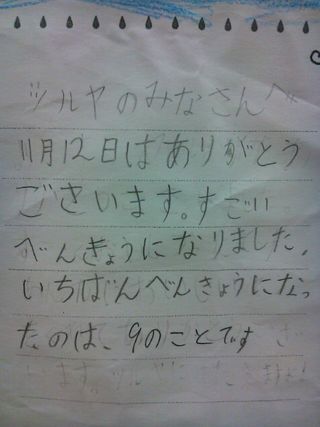 ツルヤのみなさんへ
11月12日はありがとう
ございます。すごい
べんきょうになりました。
いちばんべんきょうになっ
たのは、9のことです